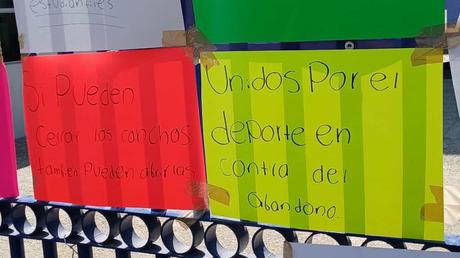 estudiantiles
Si Pueden
Cerrar las canchas
también Pueden abrirlas
Unidos Por el
deporte en
contra del
abandono.